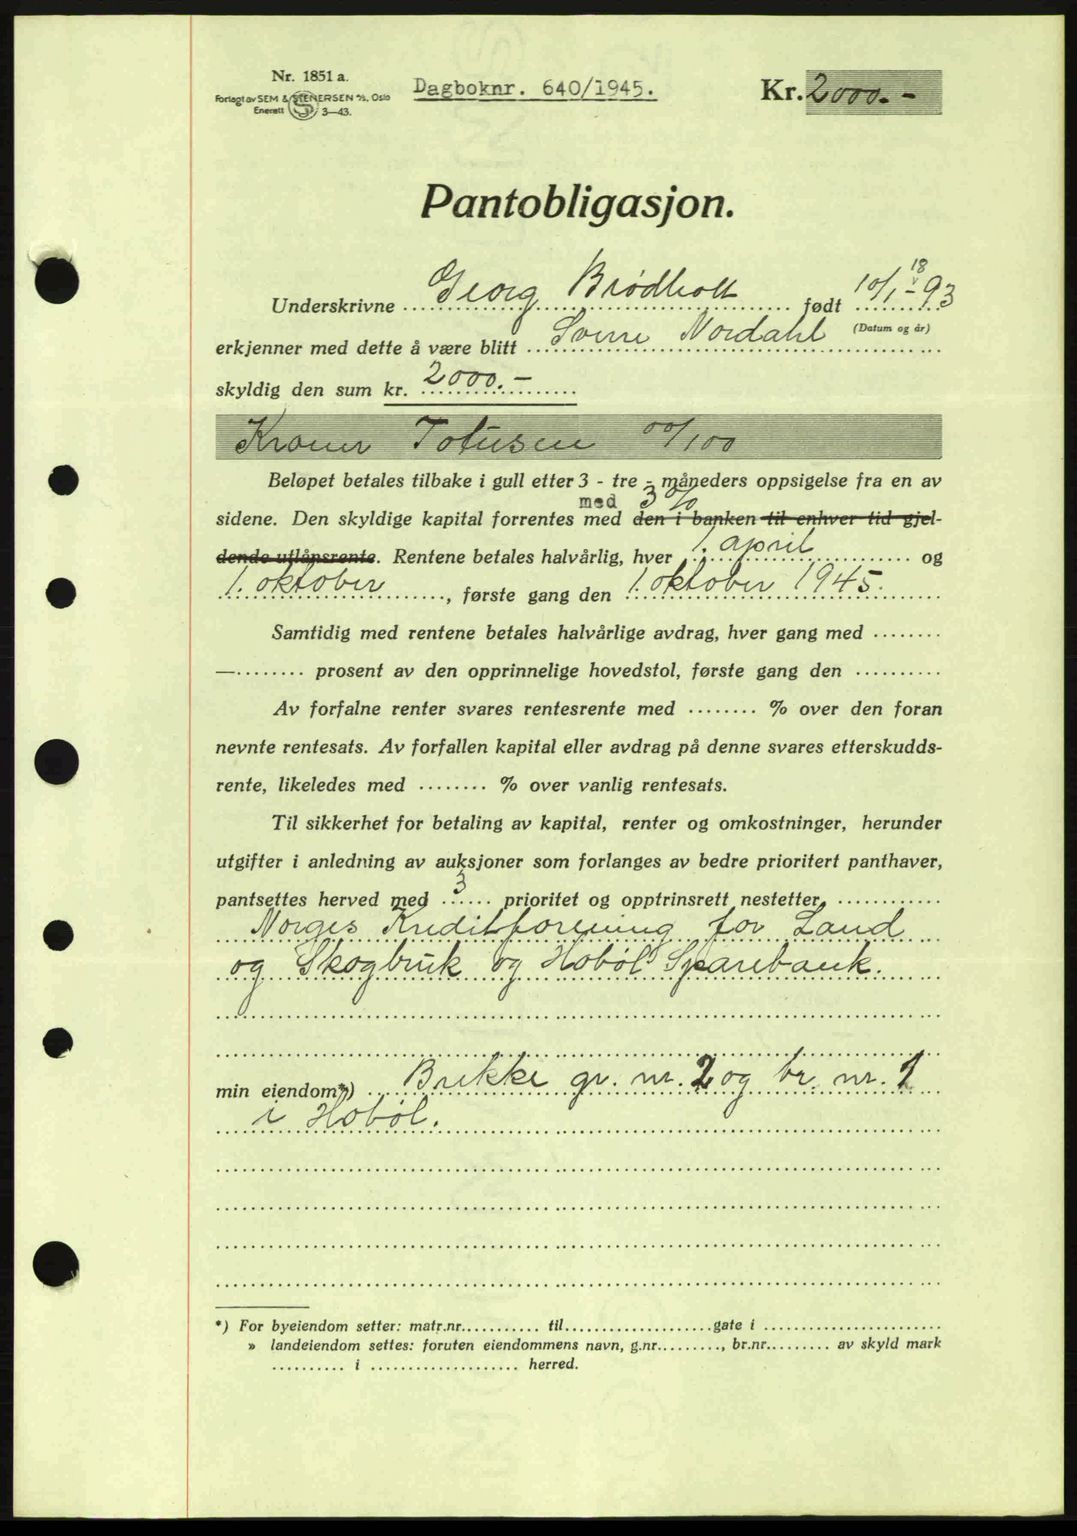 Nr. 1851 a.
Forlagt av SEM & STENERSEN A/S, Oslo
Enerett S 3—43.
Dagboknr. 640/1945.
Kr. 2000.-
Pantobligasjon.
Underskrivne Georg Brødholt født 10/1 - 18 93
(Datum og år)
erkjenner med dette å være blitt Sverre Nordahl
skyldig den sum kr. 2000.-
Kroner Totusen 00/100
Beløpet betales tilbake i gull etter 3 - tre - måneders oppsigelse fra en av
med 3%
sidene. Den skyldige kapital forrentes med den i banken til enhver tid gjel-
dende utlånsrente. Rentene betales halvårlig, hver 1. april og
1. oktober, første gang den 1. oktober 1945.
Samtidig med rentene betales halvårlige avdrag, hver gang med ........
—........ prosent av den opprinnelige hovedstol, første gang den ..........
Av forfalne renter svares rentesrente med ........ % over den foran
nevnte rentesats. Av forfallen kapital eller avdrag på denne svares etterskudds-
rente, likeledes med ........ % over vanlig rentesats.
Til sikkerhet for betaling av kapital, renter og omkostninger, herunder
utgifter i anledning av auksjoner som forlanges av bedre prioritert panthaver,
pantsettes herved med 3 prioritet og opptrinsrett nestetter
Norges Kreditforening for Land
og Skogbruk og Hobøl Sparebank.
min eiendom*) Brekke gr. nr. 2 og br. nr. 1
i Hobøl.
*) For byeiendom setter: matr.nr........... til....................gate i .........................
» landeiendom settes: foruten eiendommens navn, g.nr........., br.nr......... av skyld mark
.......... i .................... herred.